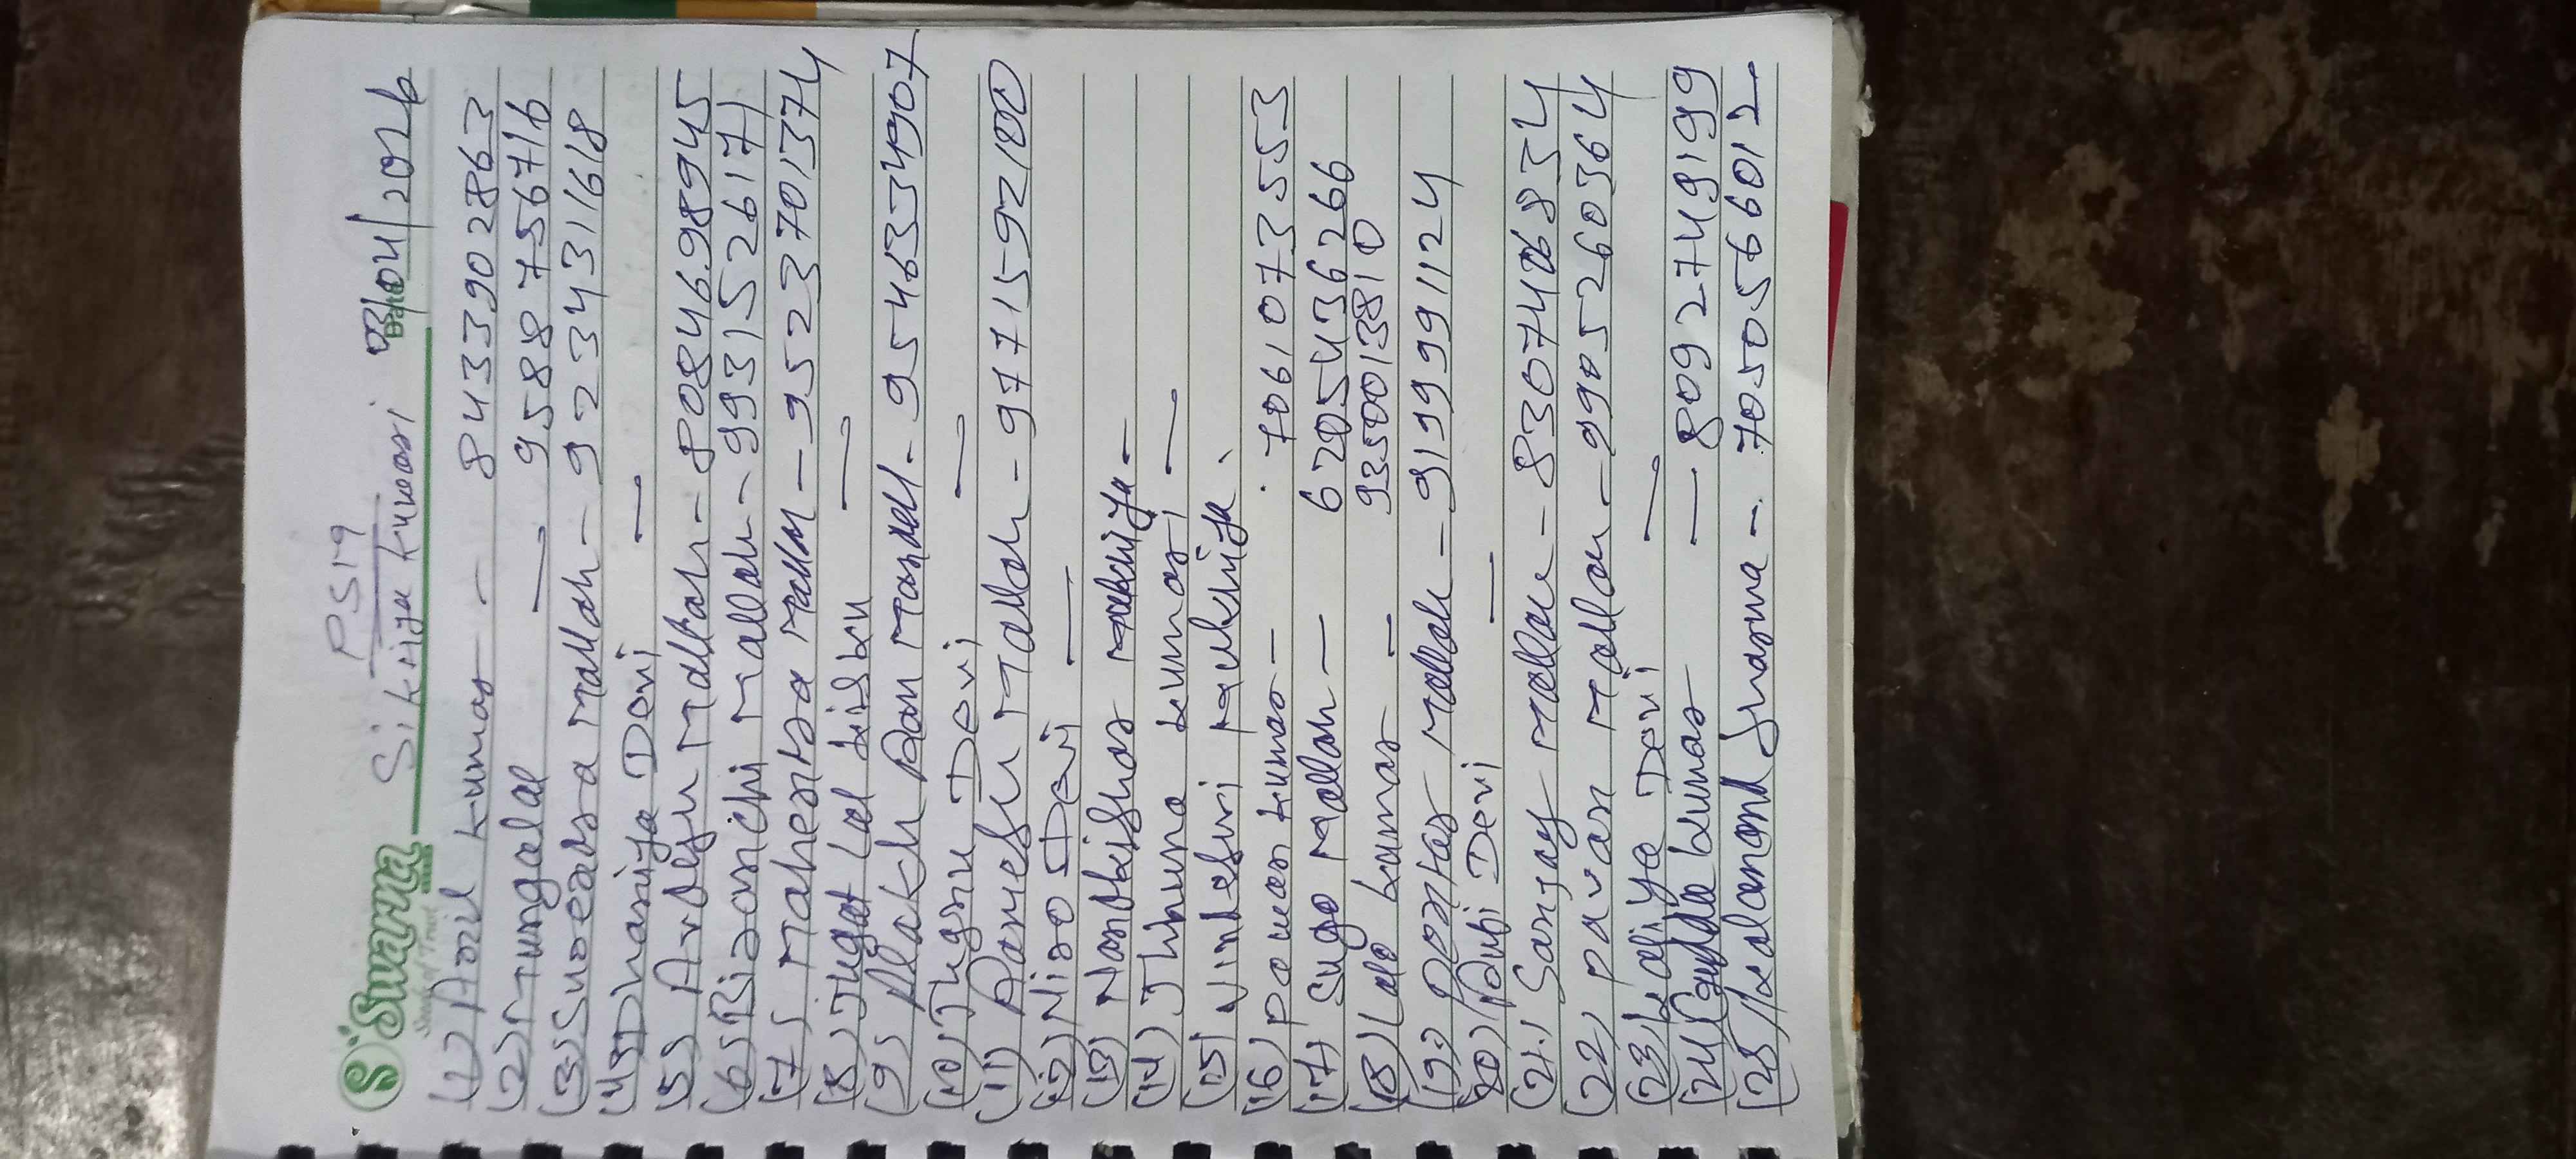 PS19
Sikiya kumari 03/04/2026
Swarna
(1) Anil kumar - 8433902863
(2) Mungalal — 9588756716
(3) Surendra Mallah - 9234311618
(4) Dhaniya Devi —
(5) Arvesu Mallah - 8084698945
(6) Biranchi Mallah - 9931526171
(7) Mahendra Mallh - 9523701374
(8) Jugat Lal kisku —
(9) Alakh Ram Mardell - 9546334907
(10) Thagnu Devi —
(11) Ramesu Mallah - 9771592100
(12) Niro Devi —
(13) Nandkishor mukhiya -
(14) Jhhuna kumari —
(15) Vinkesuri Mukhiya.
(16) pawan kumar - 7061073553
(17) Sugo Mallah - 6205436266
(18) Lalo kumar - 9350013810
(19) Mallah - 9199991124
(20) Rubi Devi —
(21) Sanjay Mallah - 8307426834
(22) pavan Mallah - 9905260364
(23) kaliya Devi —
(24) Gudda kumar — 8092749199
(25) kalanand sharma - 7050566012